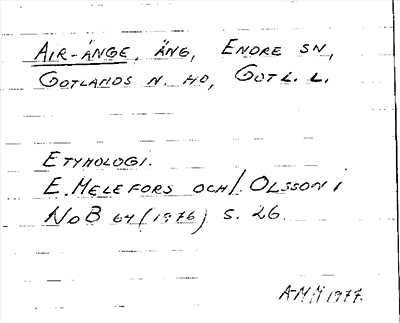 AIR-ÄNGE, ÄNG, ENDRE SN,
GOTLANDS N. HD, GOTL. L.
ETYMOLOGI.
E. MELEFORS OCH I. OLSSON i
NoB 64 (1976) S. 26.
A-MM 1977.